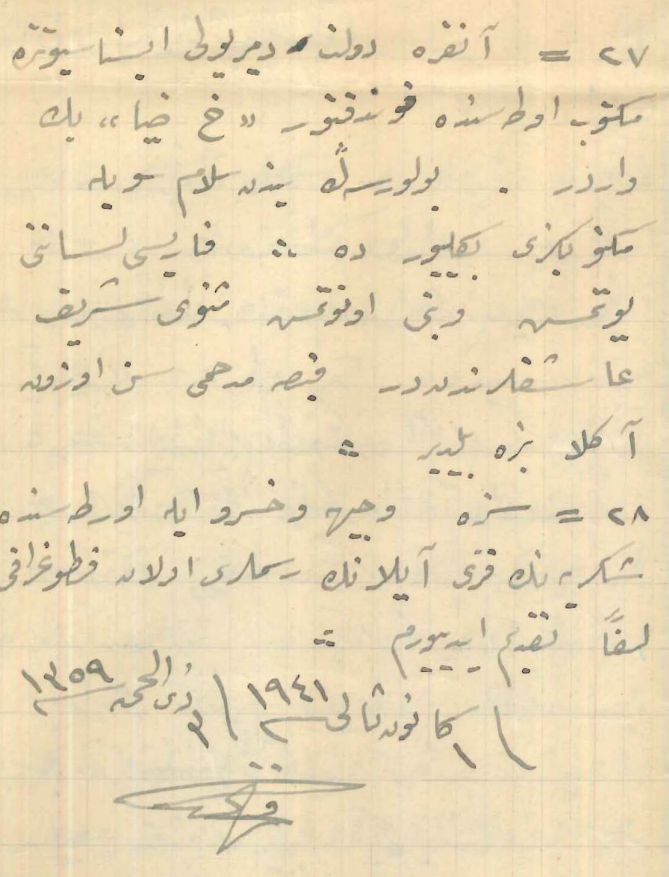 ٢٧ = آنقره دولت دميريولى ايستاسيوننده
مكتوب اوطه سنده قوندقتور «خ ضيا» بك
واردر . بولورسه ڭ بزدن سلام سويله
مكتوبكزى بكليور ده ∴ فارسى لسانى
عاشقلرندندر قيصه مدحى سن اوزون
آكلا بزه بلدير ∴
٢٨ = سزه وجيهه وخسرو ايله اورطه سنده
شكريه نك قزى آيلانك رسملرى اولان فطوغرافى
لفاً تقديم ايدييورم ∴
١ كانون ثانى ١٩٤١ \ ٣ ذى الحجه ١٣٥٩